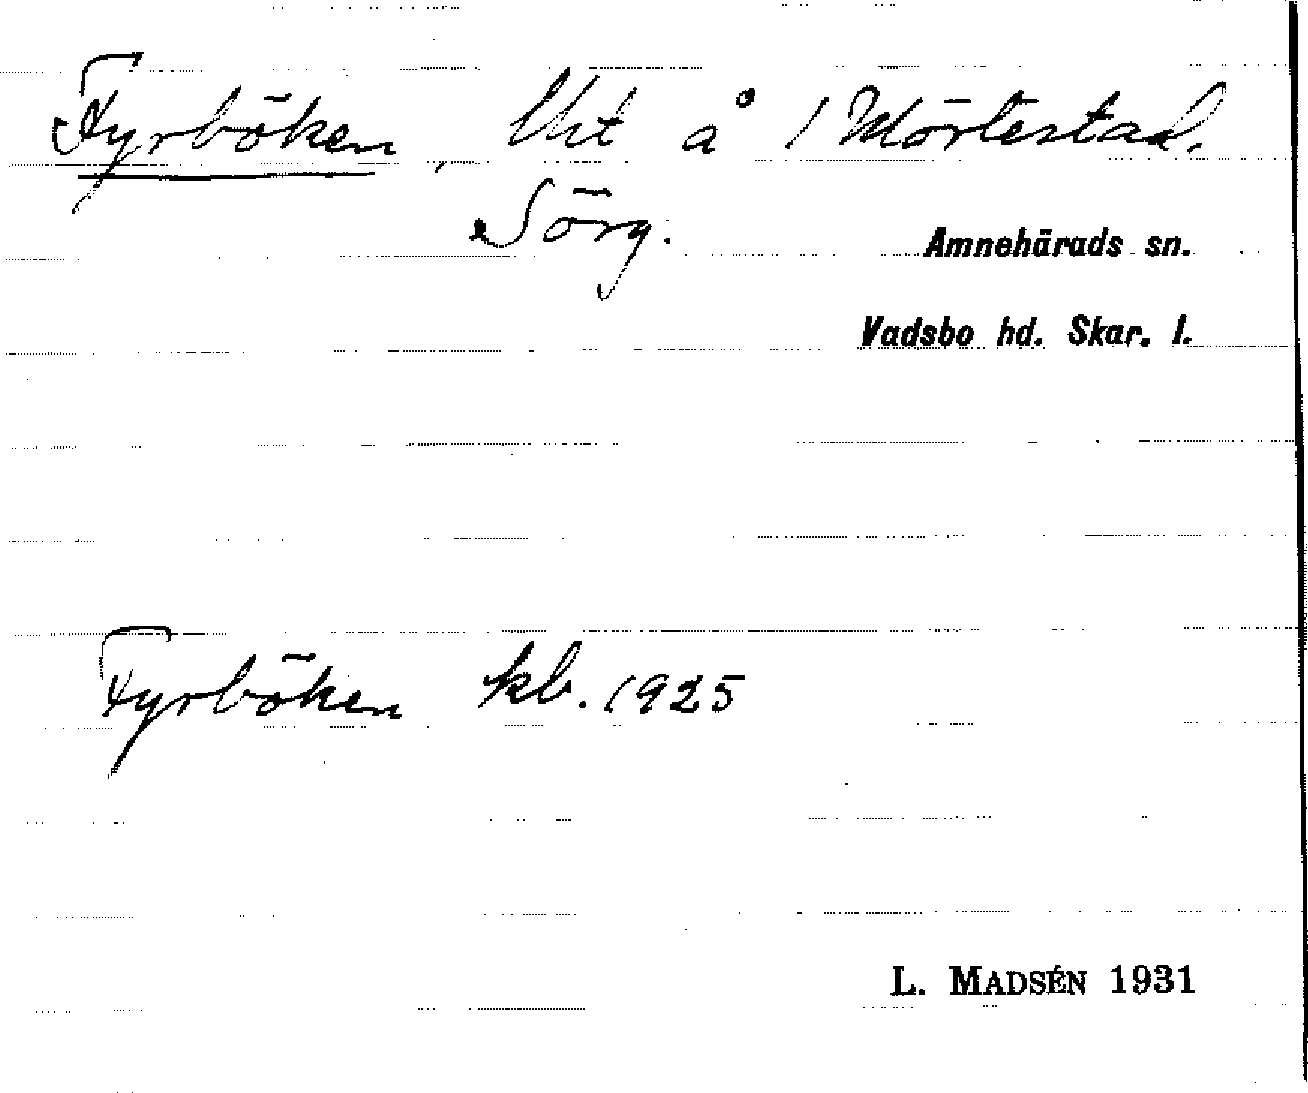 Fyrböken, Uht å 1 Mörtestad.
Sörg.
Amnehärads sn.
Vadsbo hd. Skar. l.
Fyrböken kb. 1925
L. MADSÉN 1931